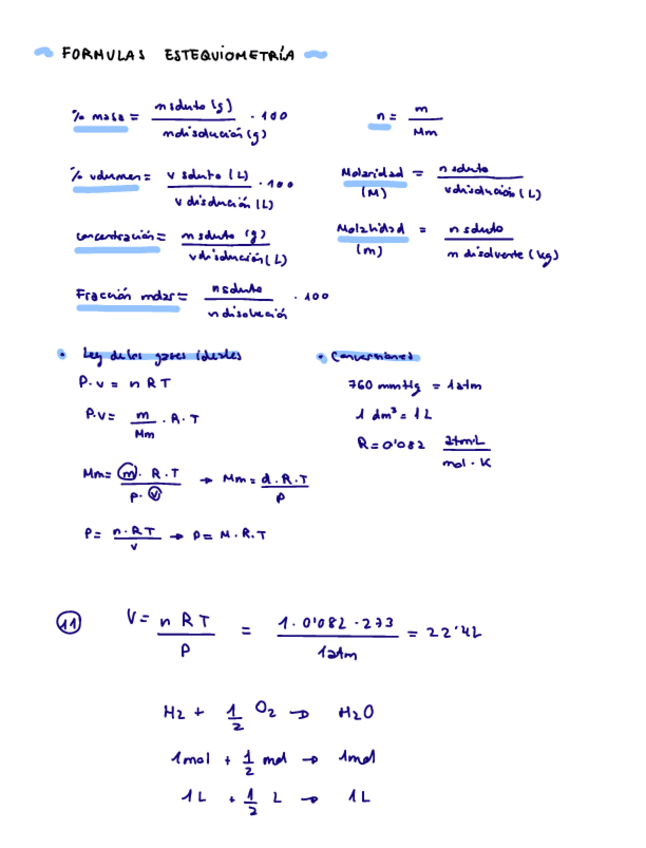 FORMULAS ESTEQUIOMETRÍA
% masa = m soluto (g) / m disolución (g) · 100
n = m / Mm
% volumen = v soluto (L) / v disolución (L) · 100
Molaridad (M) = n soluto / v disolución (L)
concentración = m soluto (g) / v disolución (L)
Molalidad (m) = n soluto / m disolvente (kg)
Fracción molar = n soluto / n disolución · 100
• Ley de los gases ideales
P·v = n R T
P·v = m / Mm · R · T
Mm = m · R · T / P · v → Mm = d · R · T / P
P = n · R T / v → P = M · R · T
• Conversiones
760 mmHg = 1 atm
1 dm³ = 1 L
R = 0'082 atm·L / mol · K
11 V = n R T / P = 1 · 0'082 · 273 / 1 atm = 22'4 L
H2 + 1/2 O2 → H2O
1 mol + 1/2 mol → 1 mol
1 L + 1/2 L → 1 L